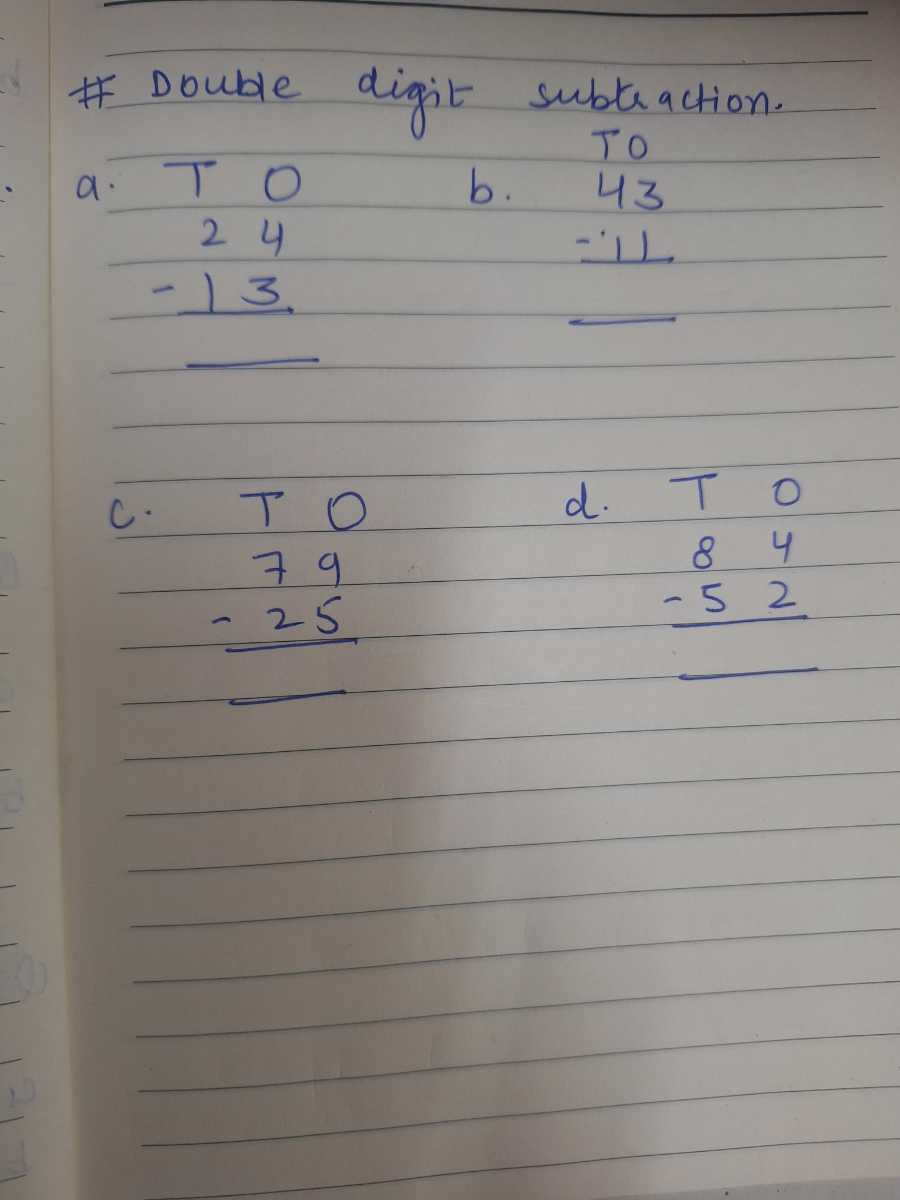 # Double digit subtraction.
a. T O
2 4
- 1 3
b. T O
43
- 11
c. T O
7 9
- 2 5
d. T O
8 4
- 5 2